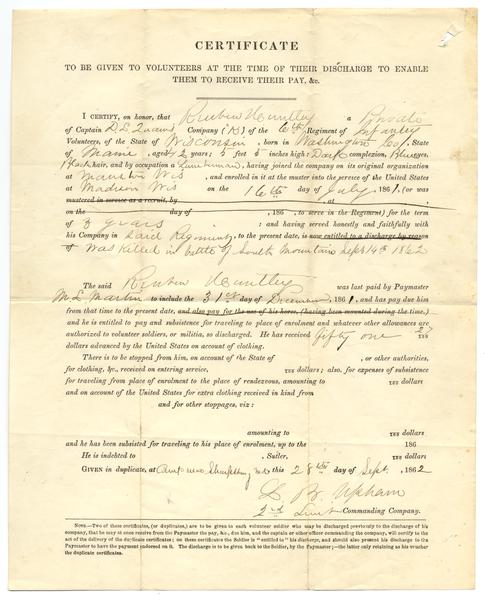 CERTIFICATE
TO BE GIVEN TO VOLUNTEERS AT THE TIME OF THEIR DISCHARGE TO ENABLE
THEM TO RECEIVE THEIR PAY, &c.
I CERTIFY, on honor, that Reuben Huntley a Private
of Captain Company (K) of the 6th Regiment of Infantry
Volunteers, of the State of Wisconsin, born in Washington Co., State
of Maine, aged 42 years; 5 feet 5 inches high; Dark complexion, Blue eyes,
Black hair, and by occupation a Lumberman, having joined the company on its original organization
at Mauston Wis, and enrolled in it at the muster into the service of the United States
at Madison Wis on the 16th day of July, 1861, (or was
mustered in service as a recruit, by , at ,
on the day of , 186 , to serve in the Regiment) for the term
of 3 years; and having served honestly and faithfully with
his Company in Said Regiment, to the present date, is now entitled to a discharge by reason
of was Killed in battle of South Mountain Sept 14th 1862
The said Reuben Huntley was last paid by Paymaster
M. L. Martin to include the 31st day of December, 1861, and has pay due him
from that time to the present date, and also pay for the use of his horse, (having been mounted during the time,)
and he is entitled to pay and subsistence for traveling to place of enrolment and whatever other allowances are
authorized to volunteer soldiers, or militia, so discharged. He has received fifty one
dollars advanced by the United States on account of clothing.
There is to be stopped from him, on account of the State of , or other authorities,
for clothing, &c., received on entering service, 100 dollars; also, for expenses of subsistence
for traveling from place of enrolment to the place of rendezvous, amounting to 100 dollars
and on account of the United States for extra clothing received in kind from
and for other stoppages, viz:
amounting to 100 dollars
and he has been subsisted for traveling to his place of enrolment, up to the 186
He is indebted to , Sutler, 100 dollars
GIVEN in duplicate, at Camp near Sharpsburg Md this 28th day of Sept, 1862
L B Upham
2nd Lieut Commanding Company.
NOTE.—Two of these certificates, (or duplicates,) are to be given to each volunteer soldier who may be discharged previously to the discharge of his
company, that he may at once receive from the Paymaster the pay, &c., due him, and the captain or other officer commanding the company, will certify to the
act of the delivery of the duplicate certificates; on these certificates the Soldier is "entitled to" his discharge, and should also present his discharge to the
Paymaster to have the payment endorsed on it. The discharge is to be given back to the Soldier, by the Paymaster;—the latter only retaining as his voucher
the duplicate certificates.